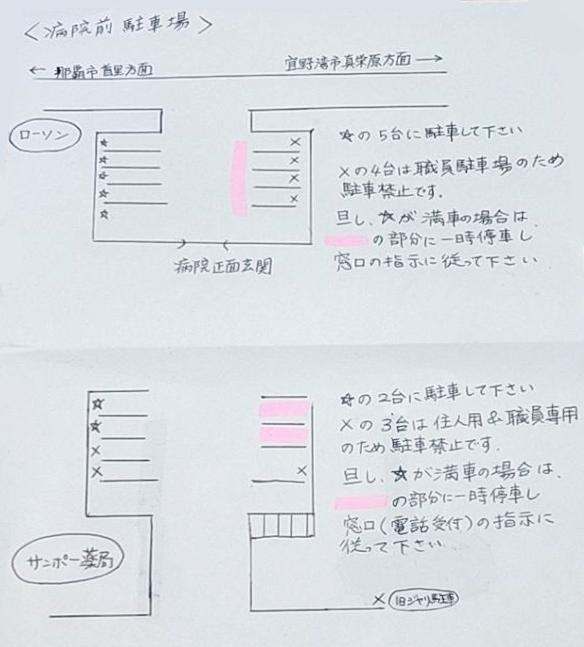 ＜病院前 駐車場＞
← 那覇市首里方面
宜野湾市真栄原方面 →
ローソン
☆の5台に駐車して下さい
×の4台は職員駐車場のため
駐車禁止です.
旦し、☆が満車の場合は、
の部分に一時停車し
窓口の指示に従って下さい.
病院正面玄関
☆の2台に駐車して下さい
×の3台は住人用&職員専用
のため駐車禁止です.
旦し、☆が満車の場合は、
の部分に一時停車し
窓口(電話受付)の指示に
従って下さい.
サンポー薬局
× 旧ジャリ駐車